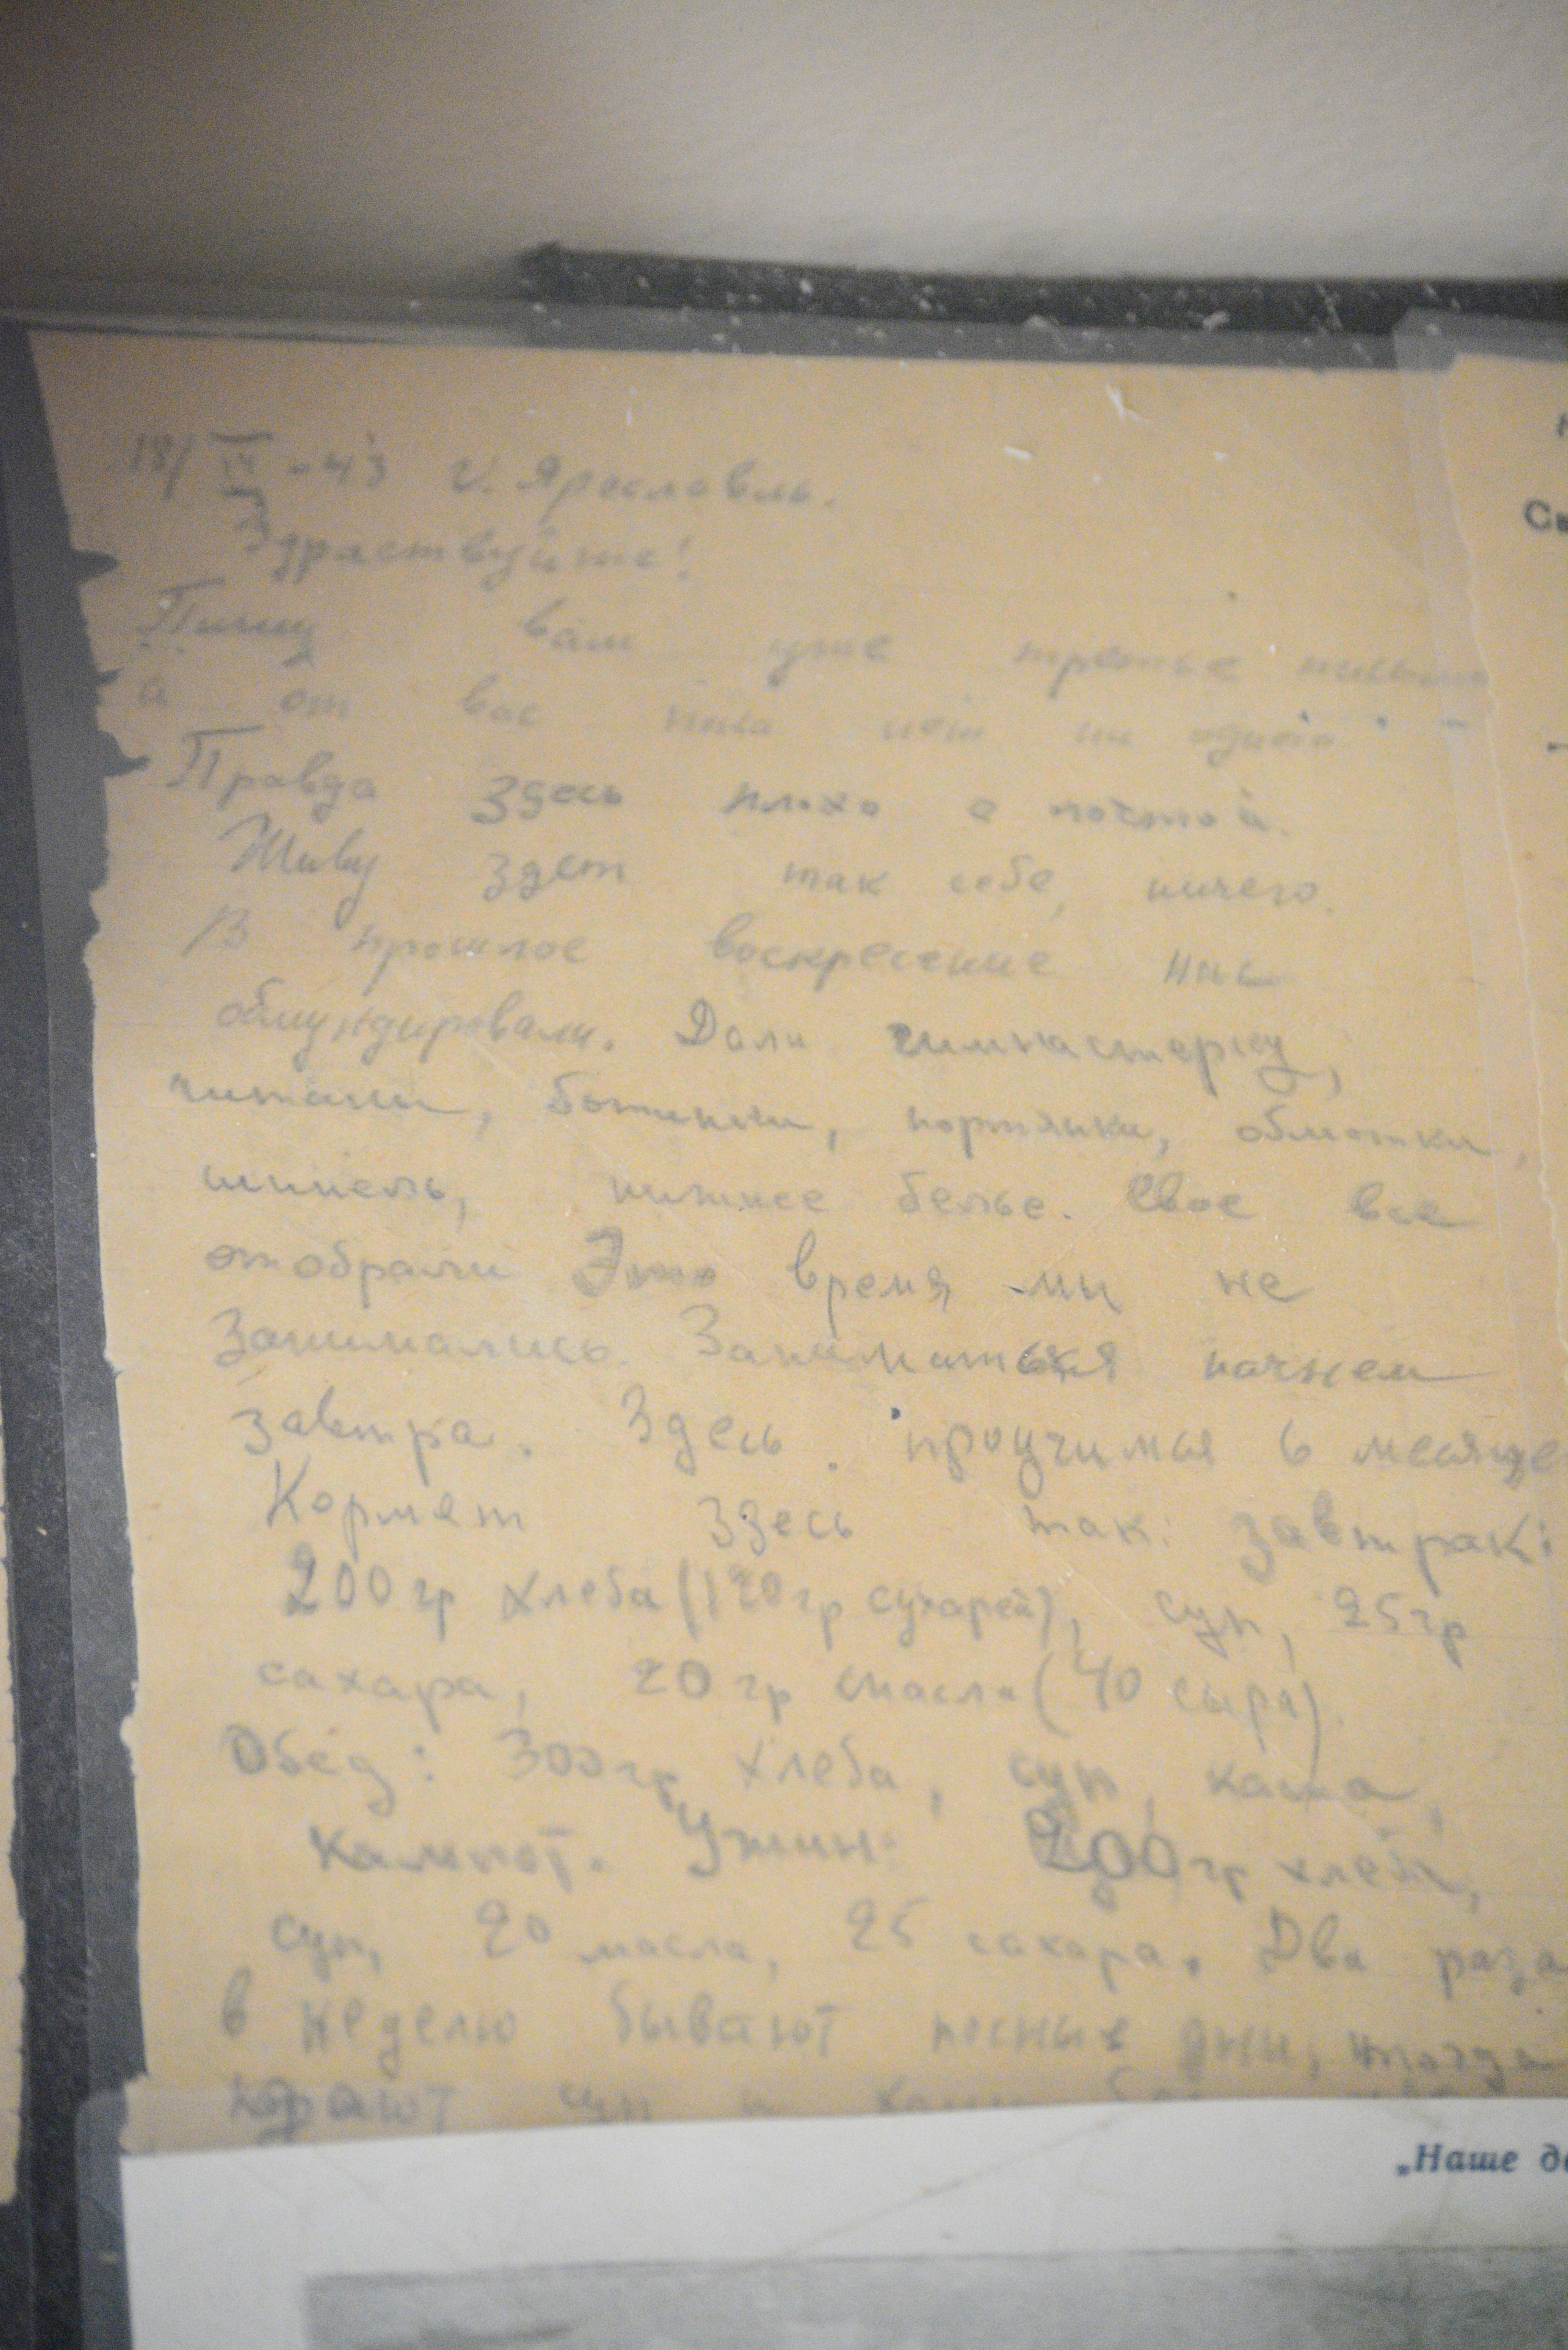 18/IX-43 г. Ярославль.
Здраствуйте!
Пишу вам уже третье письмо
а от вас пока нет ни одного
Правда здесь плохо с почтой.
Живу здесь так себе, ничего.
В прошлое воскресение нас
обмундировали. Дали гимнастерку,
ботинки, портянки, обмотки,
шинель, нижнее белье. Свое все
отобрали Это время мы не
занимались. Заниматься начнем
завтра. Здесь проучимся 6 месяце
Кормят здесь так: завтрак:
200 гр хлеба (120 гр сухарей), суп, 25 гр
сахара, 20 гр масла (40 сыра)
Обед: 300 гр хлеба, суп, каша,
кампот. Ужин: 200 гр хлеба,
суп, 20 масла, 25 сахара. Два раза
в неделю бывают посные дни, тогда
суп и
„Наше